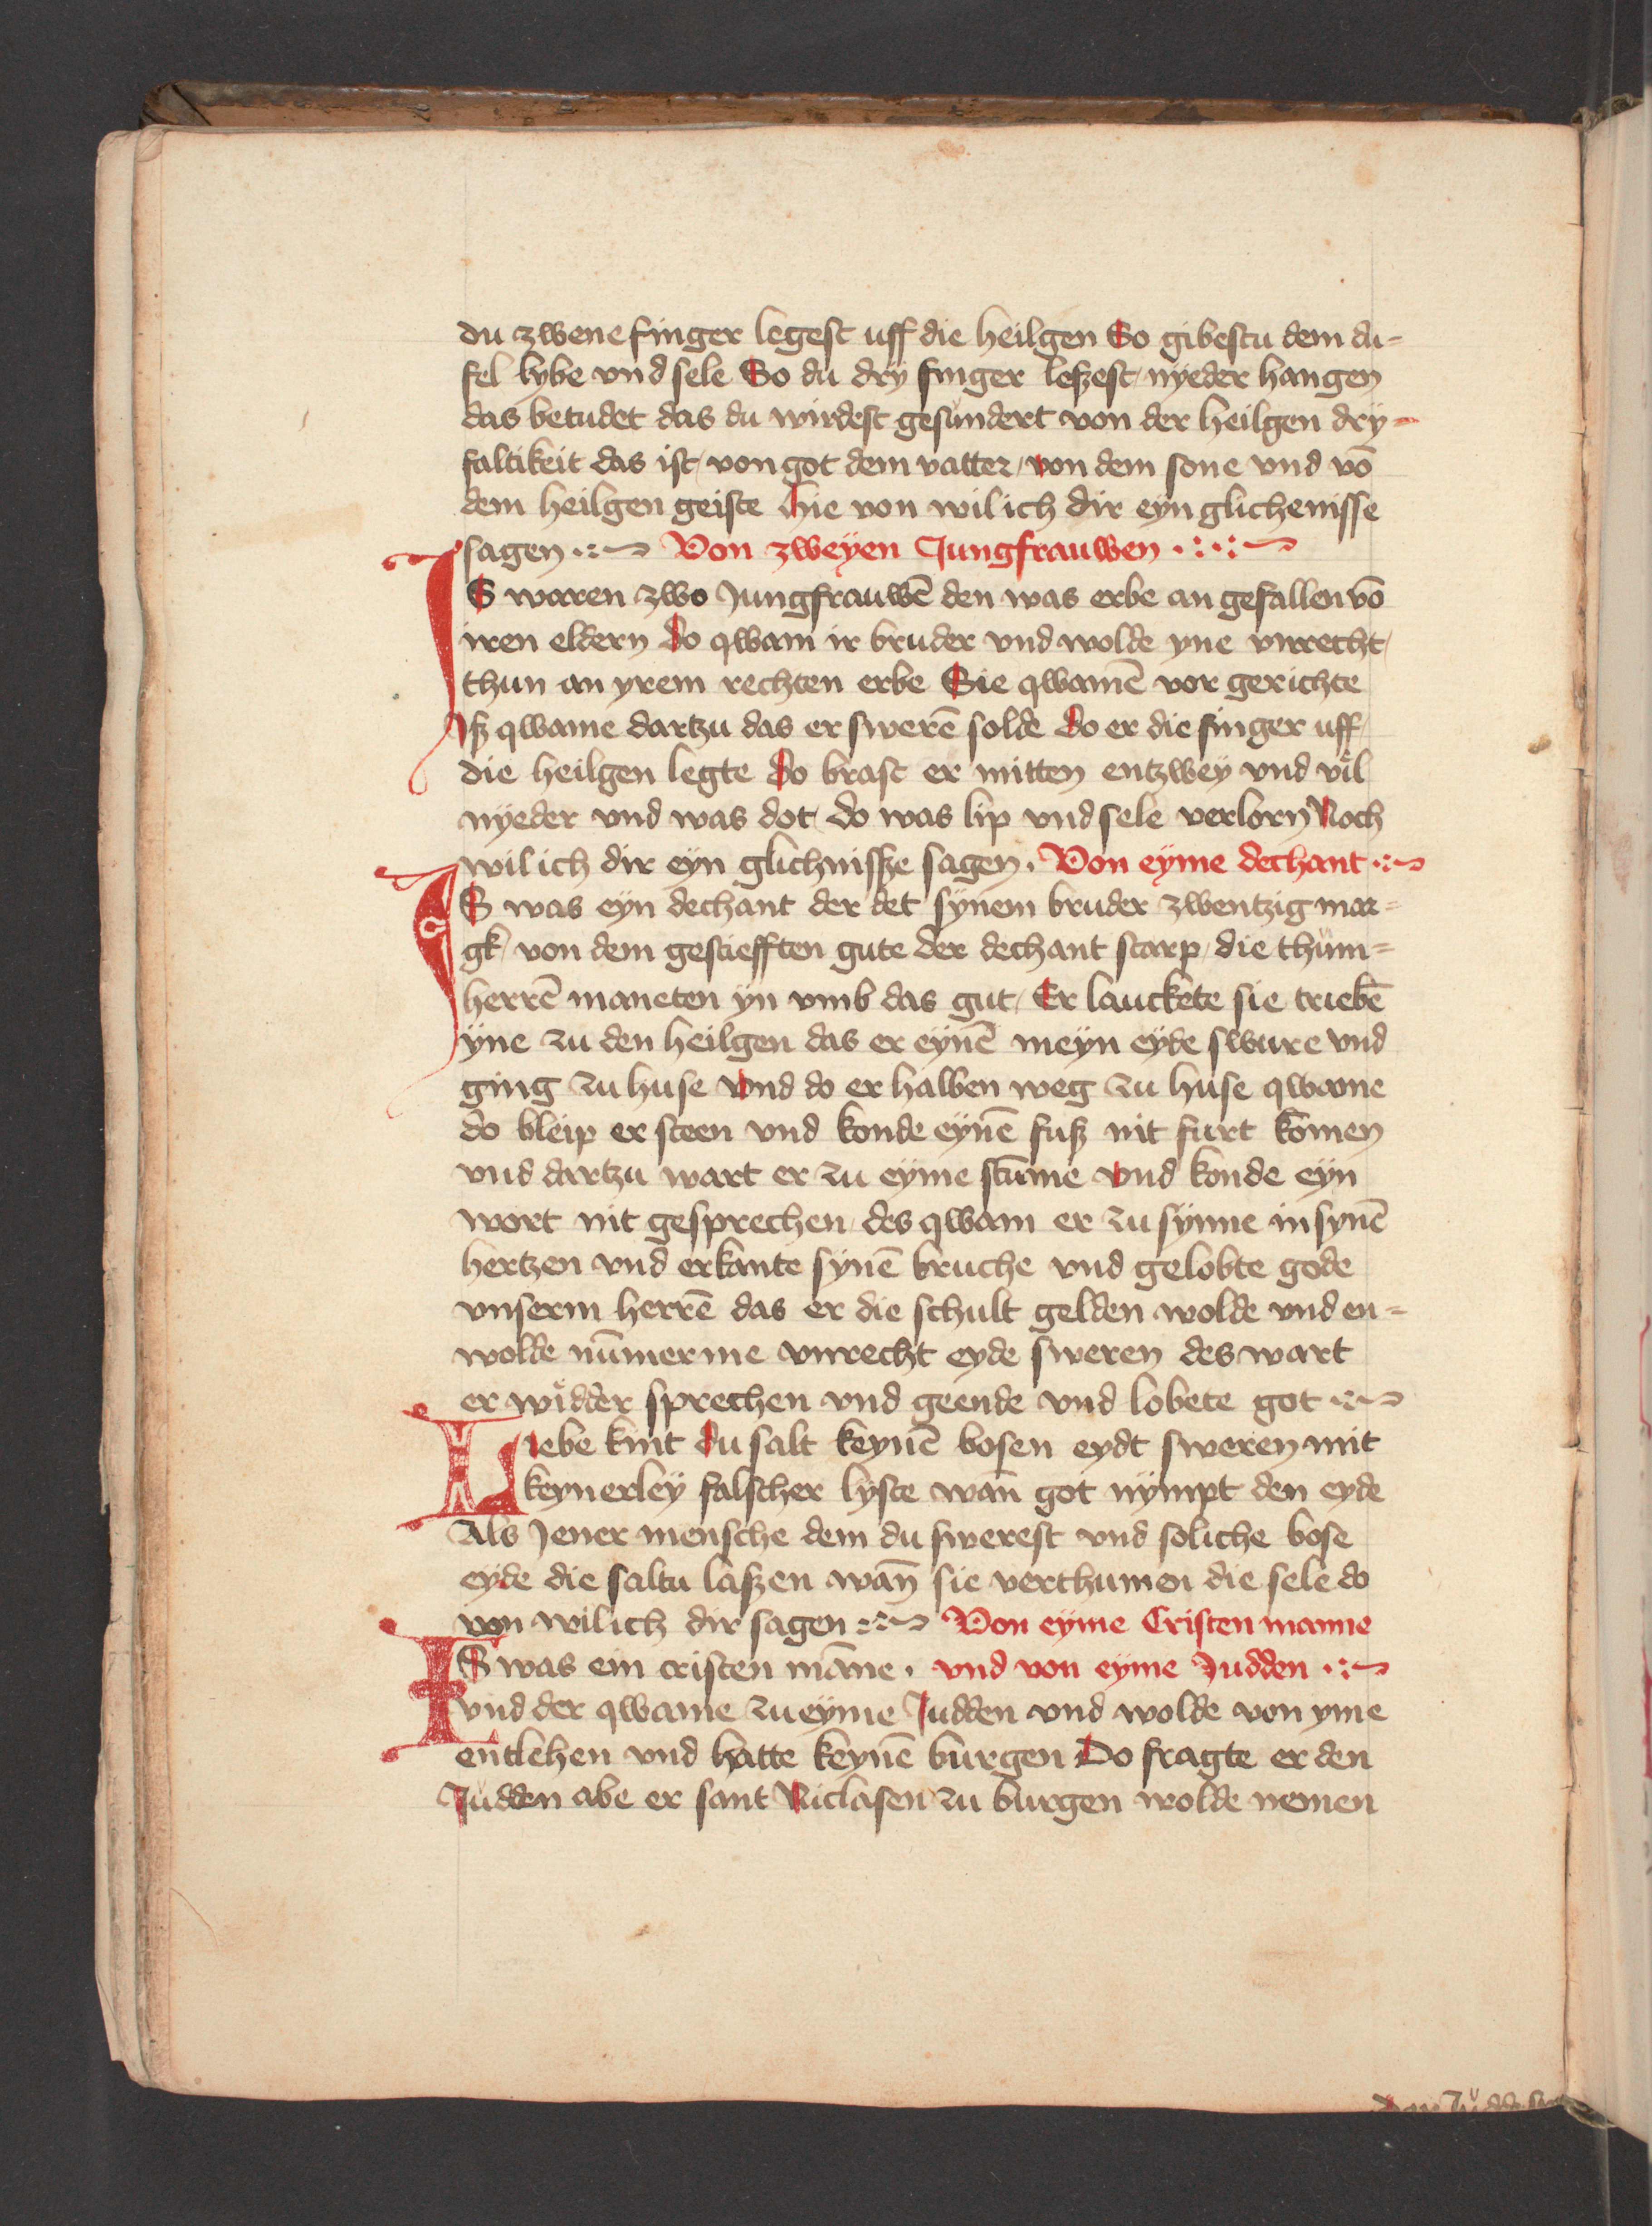 du zwene finger legest uff die heilgen So gibestu dem du-
fel lybe vnd sele So du dry finger leßest nyeder hangen
das betudet das du wirdest gesundert von der heilgen dry-
faltikeit das ist von got dem vatter von dem sone vnd vō
dem heilgen geiste Hie von wil ich dir eyn glichenisse
sagen Von zweyen Jungfrauwen
IS waren zwo Jungfrauwē den was erbe an gefallen vō
iren eldern do qwam ir bruder vnd wolde yne vnrecht
thun an yrem rechten erbe Sie qwamē vor gerichte
Iß qwame dartzu das er swerē solde do er die finger uff
die heilgen legte do brast er mitten entzwey vnd viel
nyeder vnd was dot do was lip vnd sele verlorn Noch
wil ich dir eyn glichnisße sagen. Von eyme dechant
IS was eyn dechant der det synem bruder zwentzig mar-
gk von dem gestiefften gute der dechant starp die thům-
herrē maneten yn vmb das gut Er lauckete sie triebē
yne zu den heilgen das er eynē meyn eyde swure vnd
ging zu huse vnd do er halben weg zu huse qwame
do bleip er steen vnd konde eynē fuß nit furt kōmen
vnd dartzu wart er zu eyme stūme vnd konde eyn
wort nit gesprechen des qwam er zu synne in synē
hertzen vnd erkante synē bruche vnd gelobte gode
vnserm herrē das er die schult gelden wolde vnd en-
wolde nūmerme vnrecht eyde sweren des wart
er widder sprechen vnd geende vnd lobete got
Liebe kint du salt keynē bosen eydt sweren mit
keynerley falscher lyste wañ got nympt den eyde
Als Jener mensche dem du swerest vnd soliche bose
eyde die saltu laßen wañ sie verthumen die sele do
von wil ich dir sagen Von eyme Cristen manne
IS was ein cristen māne. vnd von eyme Judden
vnd der qwame zu eyme Judden vnd wolde von yme
entlehen vnd hatte keynē burgen Do fragte er den
Judden abe er sant Niclasen zu burgen wolde nemen